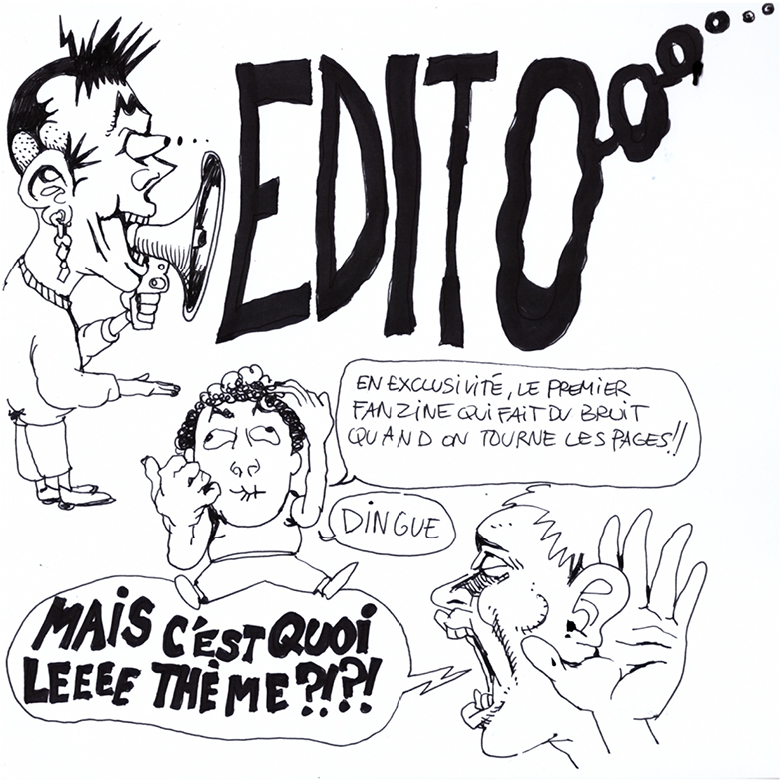 EDITO
EN EXCLUSIVITÉ, LE PREMIER
FANZINE QUI FAIT DU BRUIT
QUAND ON TOURNE LES PAGES!!
DINGUE
MAIS C'EST QUOI
LEEEE THÈME?!?!